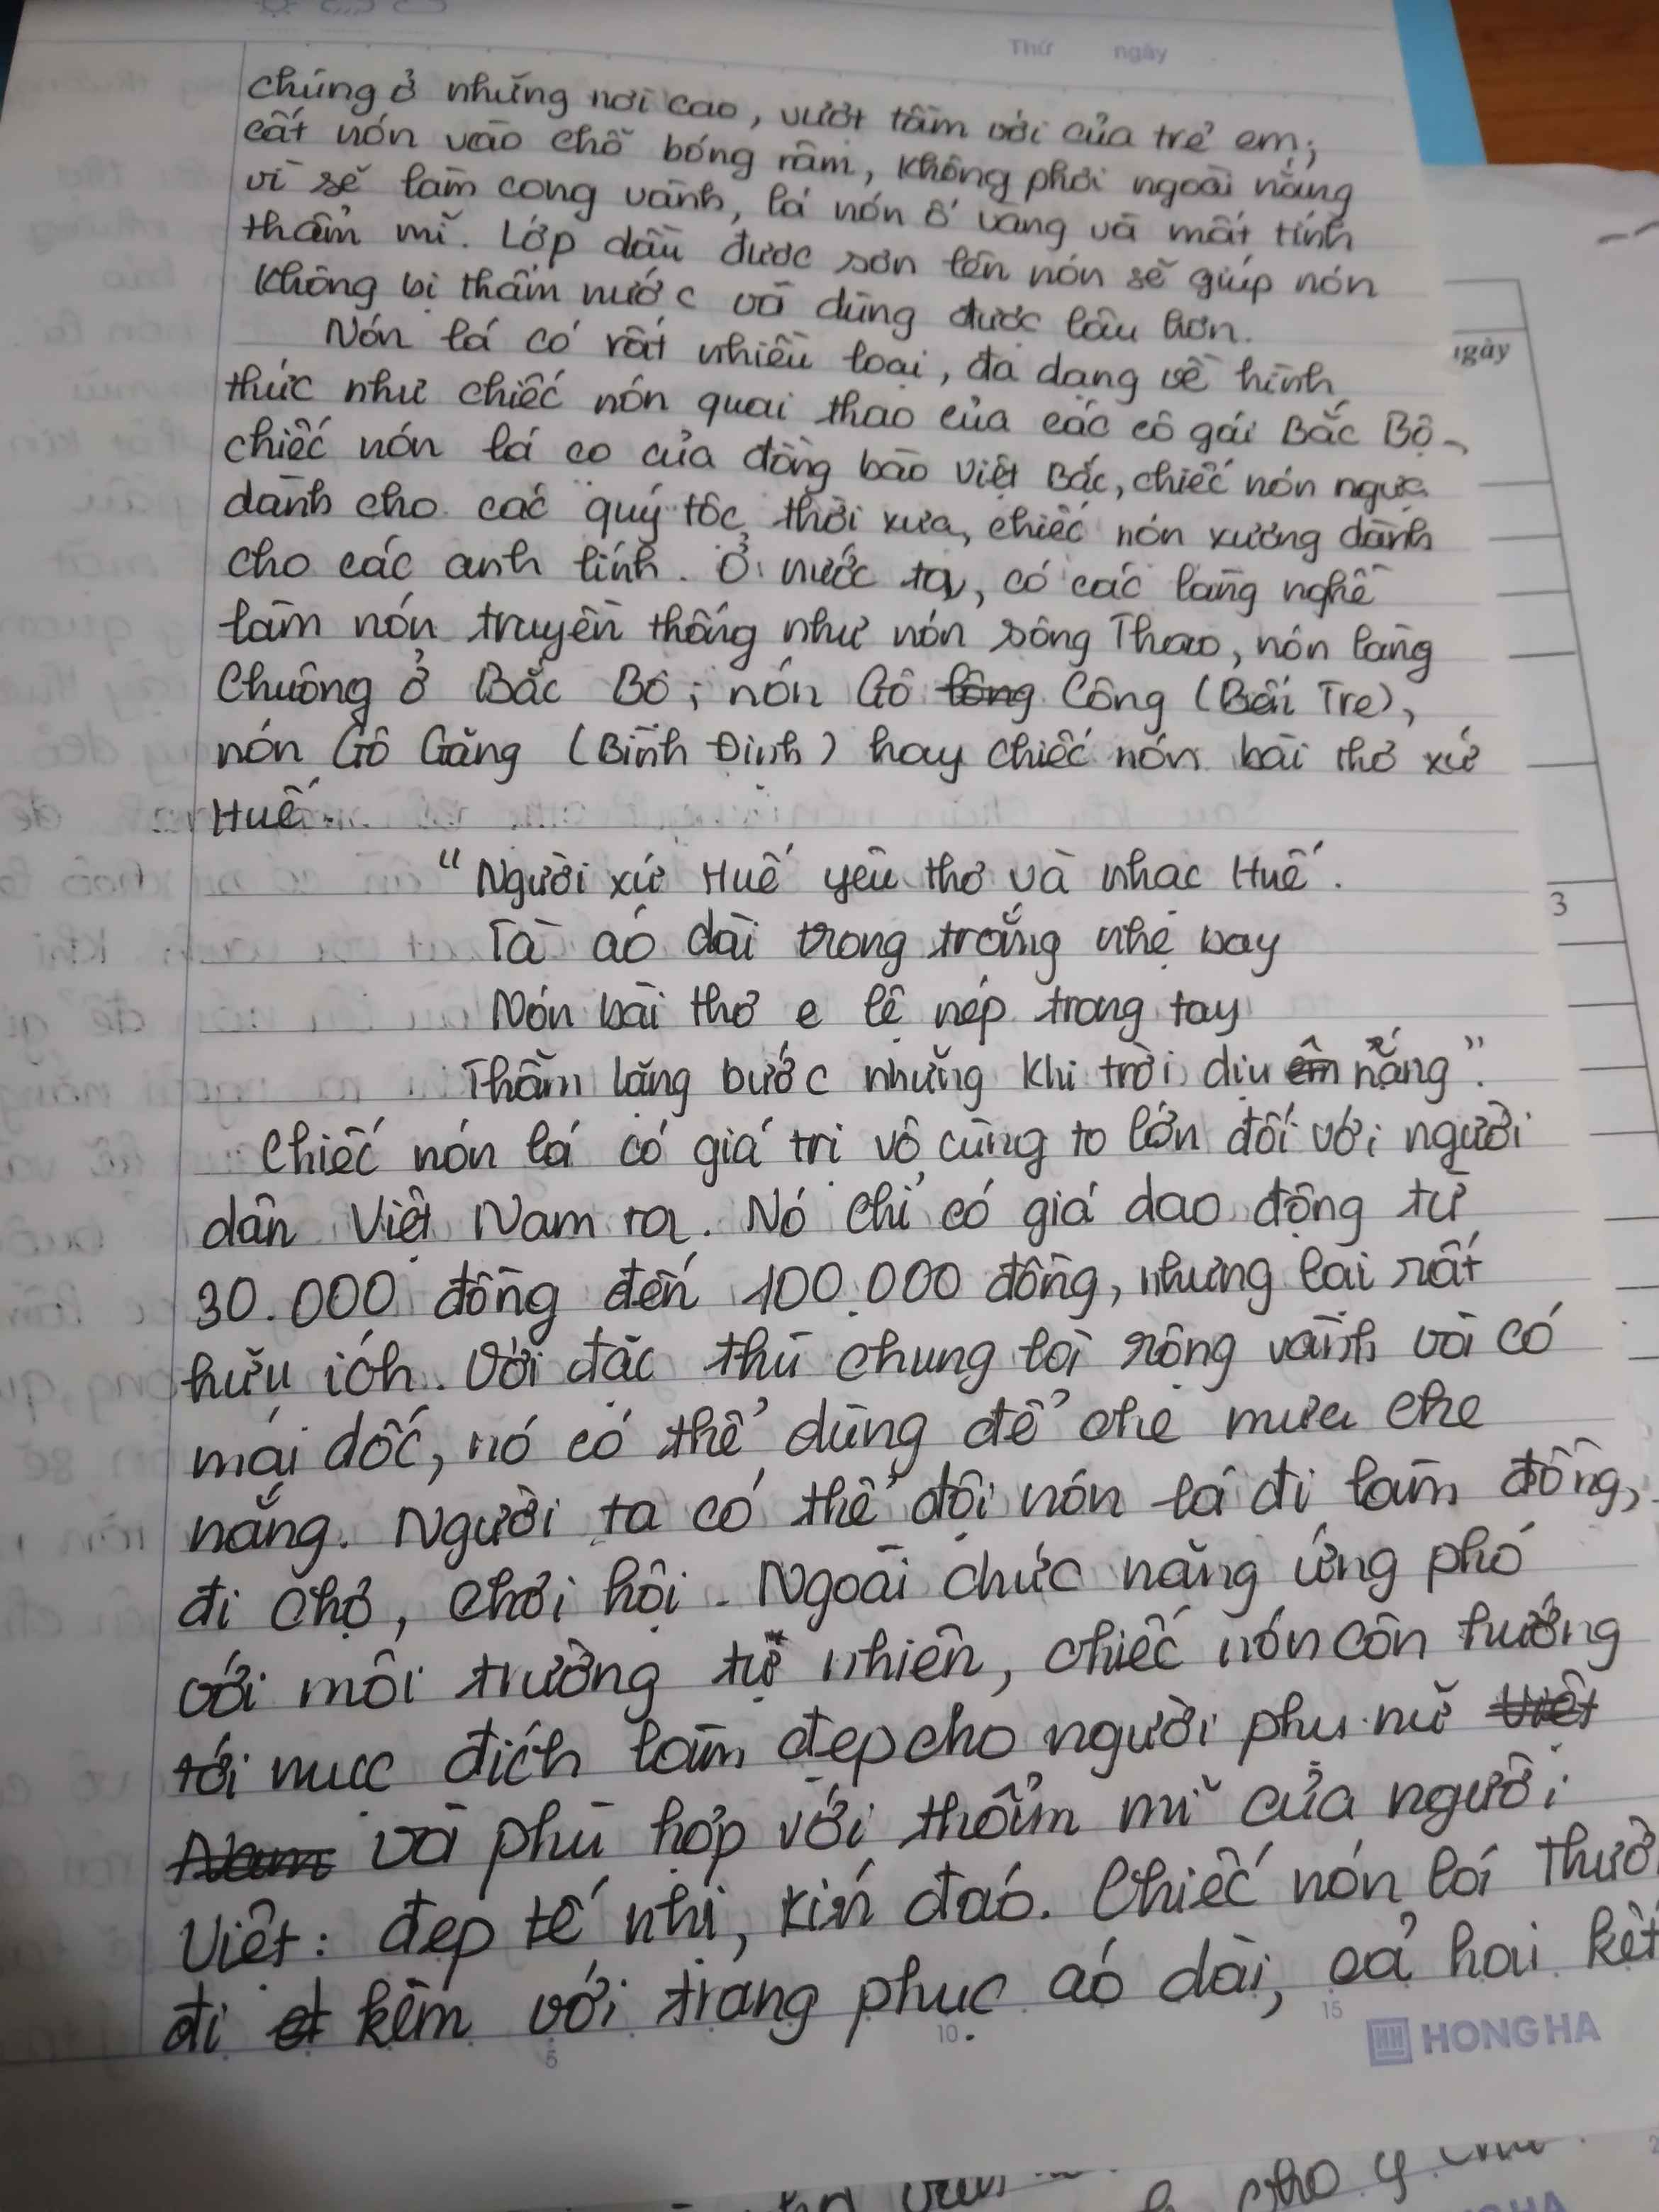 Thứ ngày
chúng ở những nơi cao, vượt tầm với của trẻ em;
cất nón vào chỗ bóng râm, không phơi ngoài nắng
vì sẽ làm cong vành, lá nón ố vàng và mất tính
thẩm mĩ. Lớp dầu được sơn lên nón sẽ giúp nón
không bị thấm nước và dùng được lâu hơn.
Nón lá có rất nhiều loại, đa dạng về hình
ngày
thức như chiếc nón quai thao của các cô gái Bắc Bộ,
chiếc nón lá cọ của đồng bào Việt Bắc, chiếc nón ngựa
dành cho các quý tộc thời xưa, chiếc nón xương dành
cho các anh lính. Ở nước ta, có các làng nghề
làm nón truyền thống như nón sông Thao, nón làng
Chuông ở Bắc Bộ; nón Gò Công (Bến Tre),
nón Gò Găng (Bình Định) hay chiếc nón bài thơ xứ
Huế.
"Người xứ Huế yêu thơ và nhạc Huế.
3
Tà áo dài trong trắng nhẹ bay
Nón bài thơ e lệ nép trong tay
Thầm lặng bước những khi trời dịu nắng".
Chiếc nón lá có giá trị vô cùng to lớn đối với người
dân Việt Nam ta. Nó chỉ có giá dao động từ
30.000 đồng đến 100.000 đồng, nhưng lại rất
hữu ích. Với đặc thù chung là rộng vành và có
mái dốc, nó có thể dùng để che mưa che
nắng. Người ta có thể đội nón lá đi làm đồng,
đi chợ, chơi hội. Ngoài chức năng ứng phó
với môi trường tự nhiên, chiếc nón còn hướng
tới mục đích làm đẹp cho người phụ nữ
và phù hợp với thẩm mĩ của người
Việt: đẹp tế nhị, kín đáo. Chiếc nón lá
đi kèm với trang phục áo dài, cả hai kết
5 10 15
HONG HA